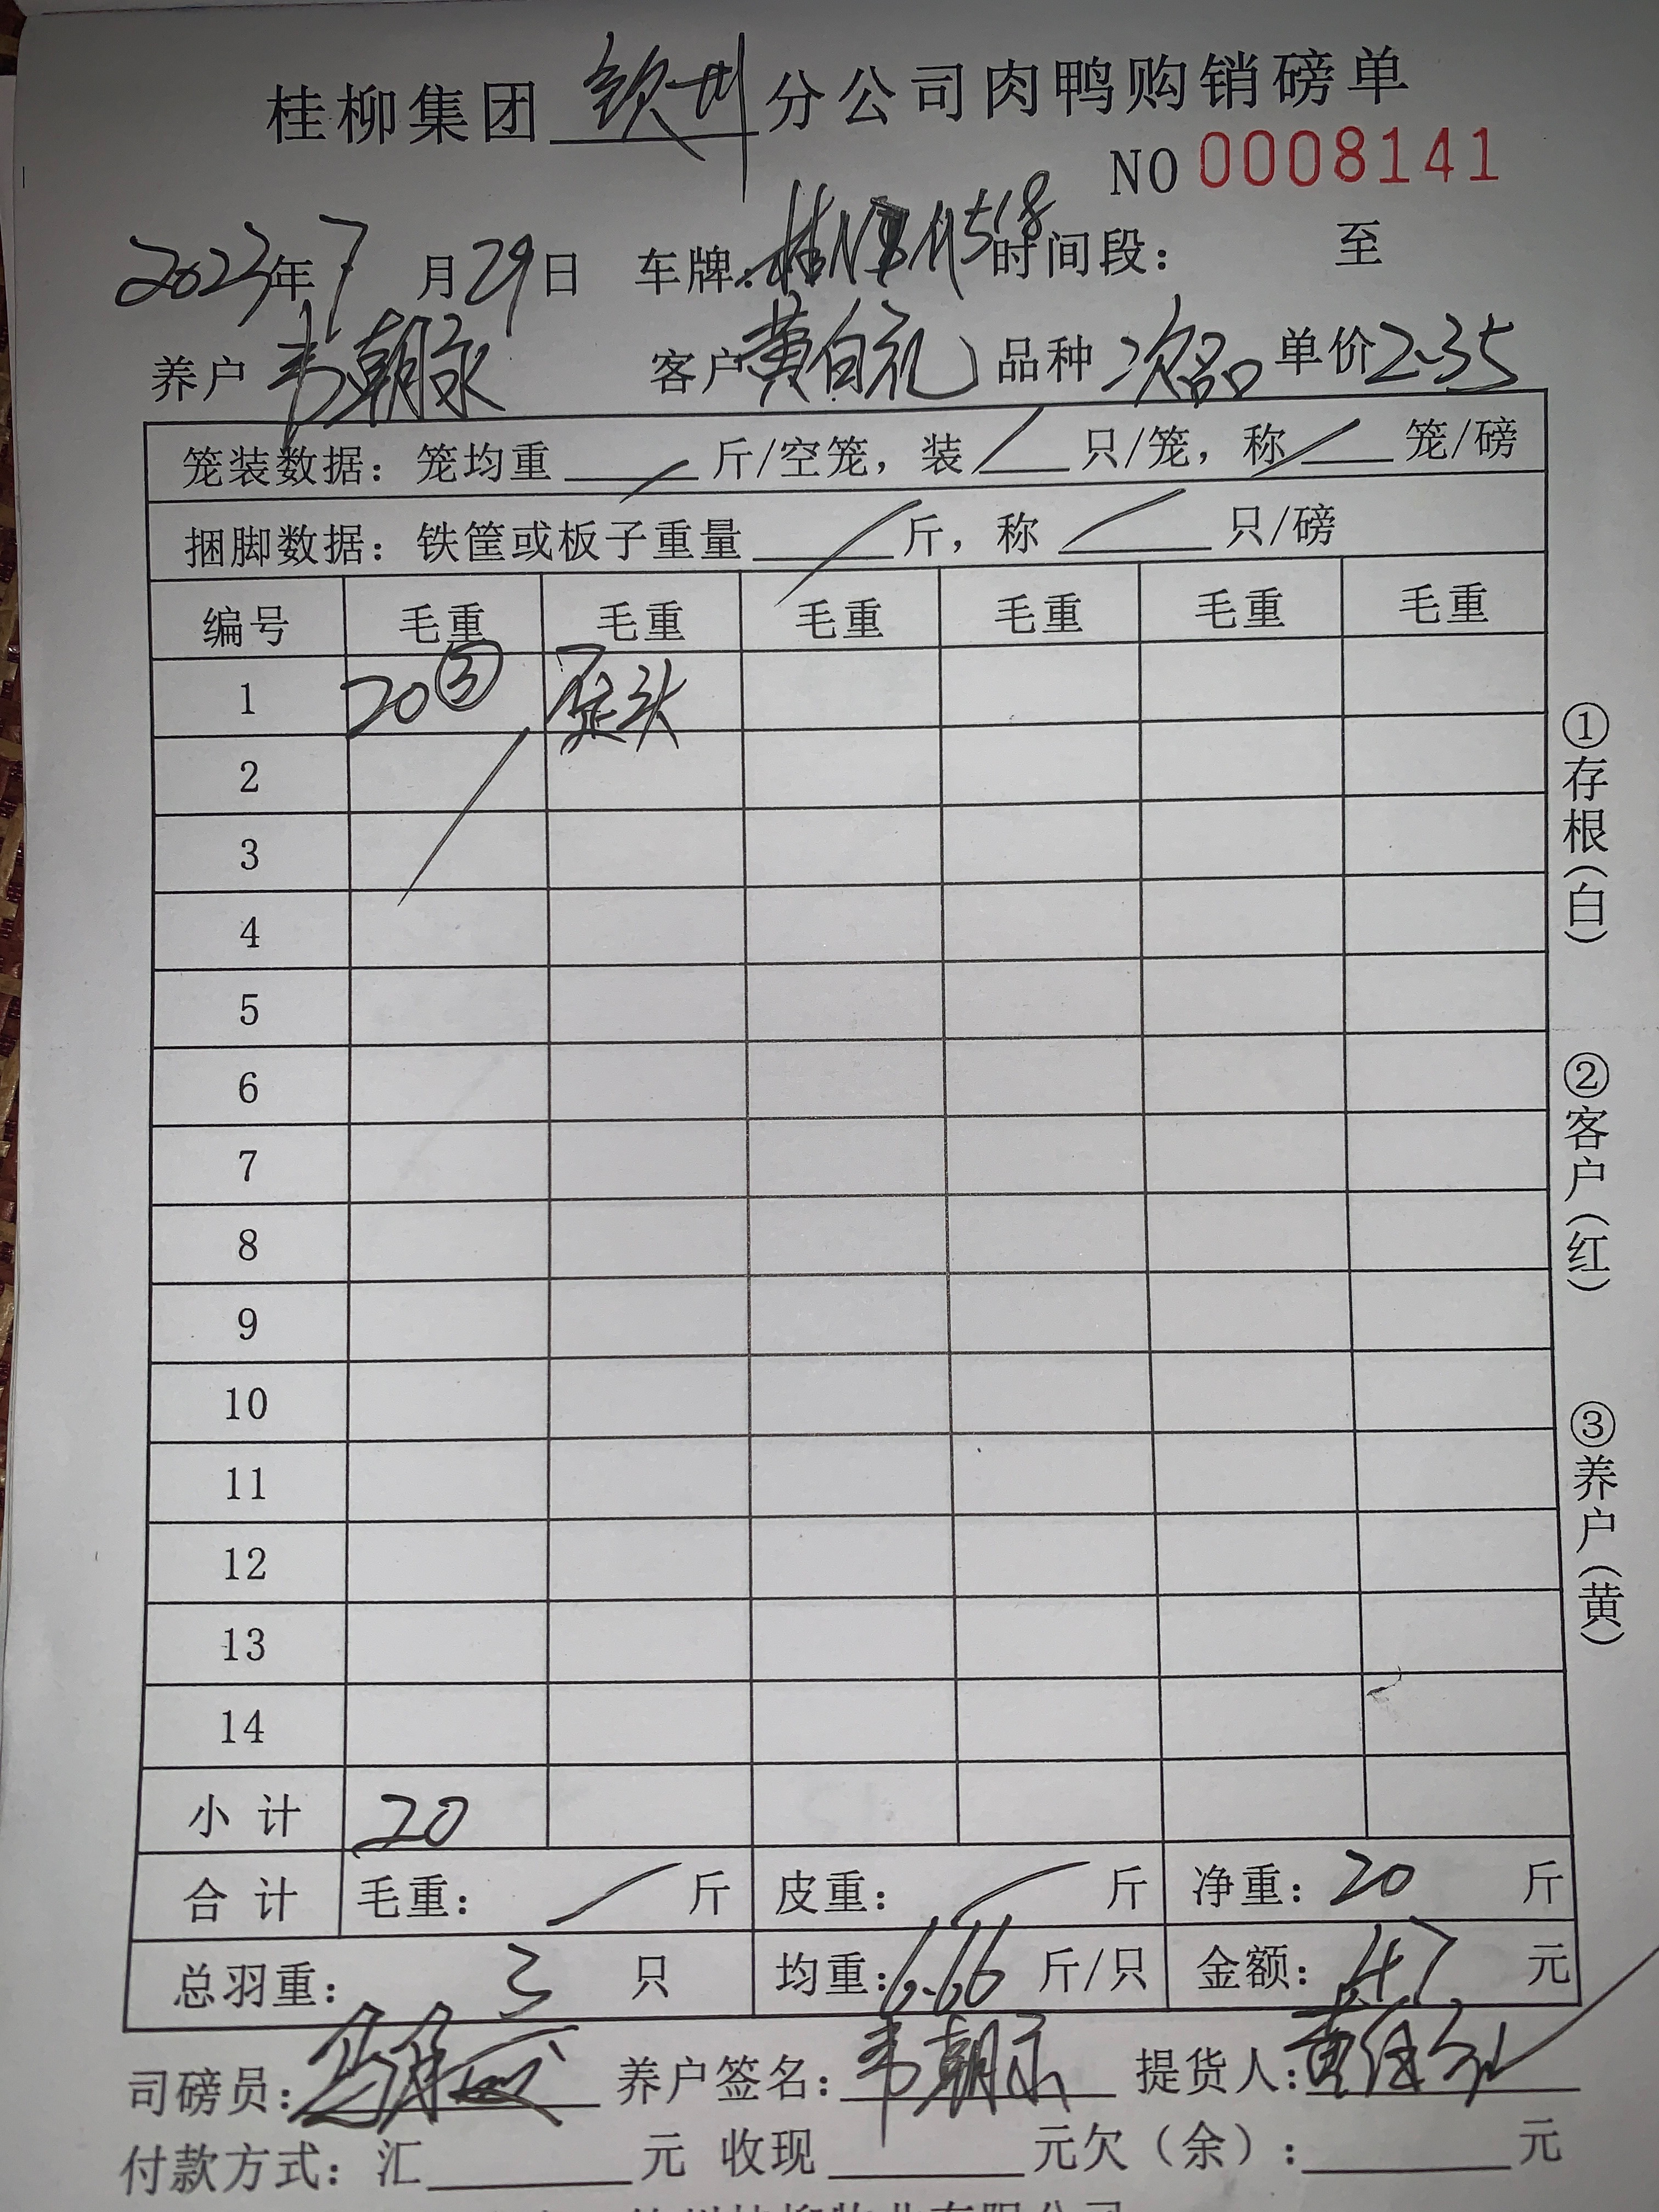 桂柳集团 钦州 分公司肉鸭购销磅单
NO 0008141
2023年7月29日 车牌: 时间段: 至
养户 韦朝永 客户 黄 品种 次品 单价 2.35
笼装数据: 笼均重 / 斤/空笼, 装 / 只/笼, 称 / 笼/磅
捆脚数据: 铁筐或板子重量 / 斤, 称 / 只/磅
编号 毛重 毛重 毛重 毛重 毛重 毛重
1 20③ 歪头
2
3
4
5
6
7
8
9
10
11
12
13
14
小计 20
合计 毛重: / 斤 皮重: / 斤 净重: 20 斤
总羽重: 3 只 均重: 6.66 斤/只 金额: 47 元
司磅员: 养户签名: 韦朝永 提货人: 黄
付款方式: 汇 元 收现 元欠(余): 元
①存根(白)
②客户(红)
③养户(黄)